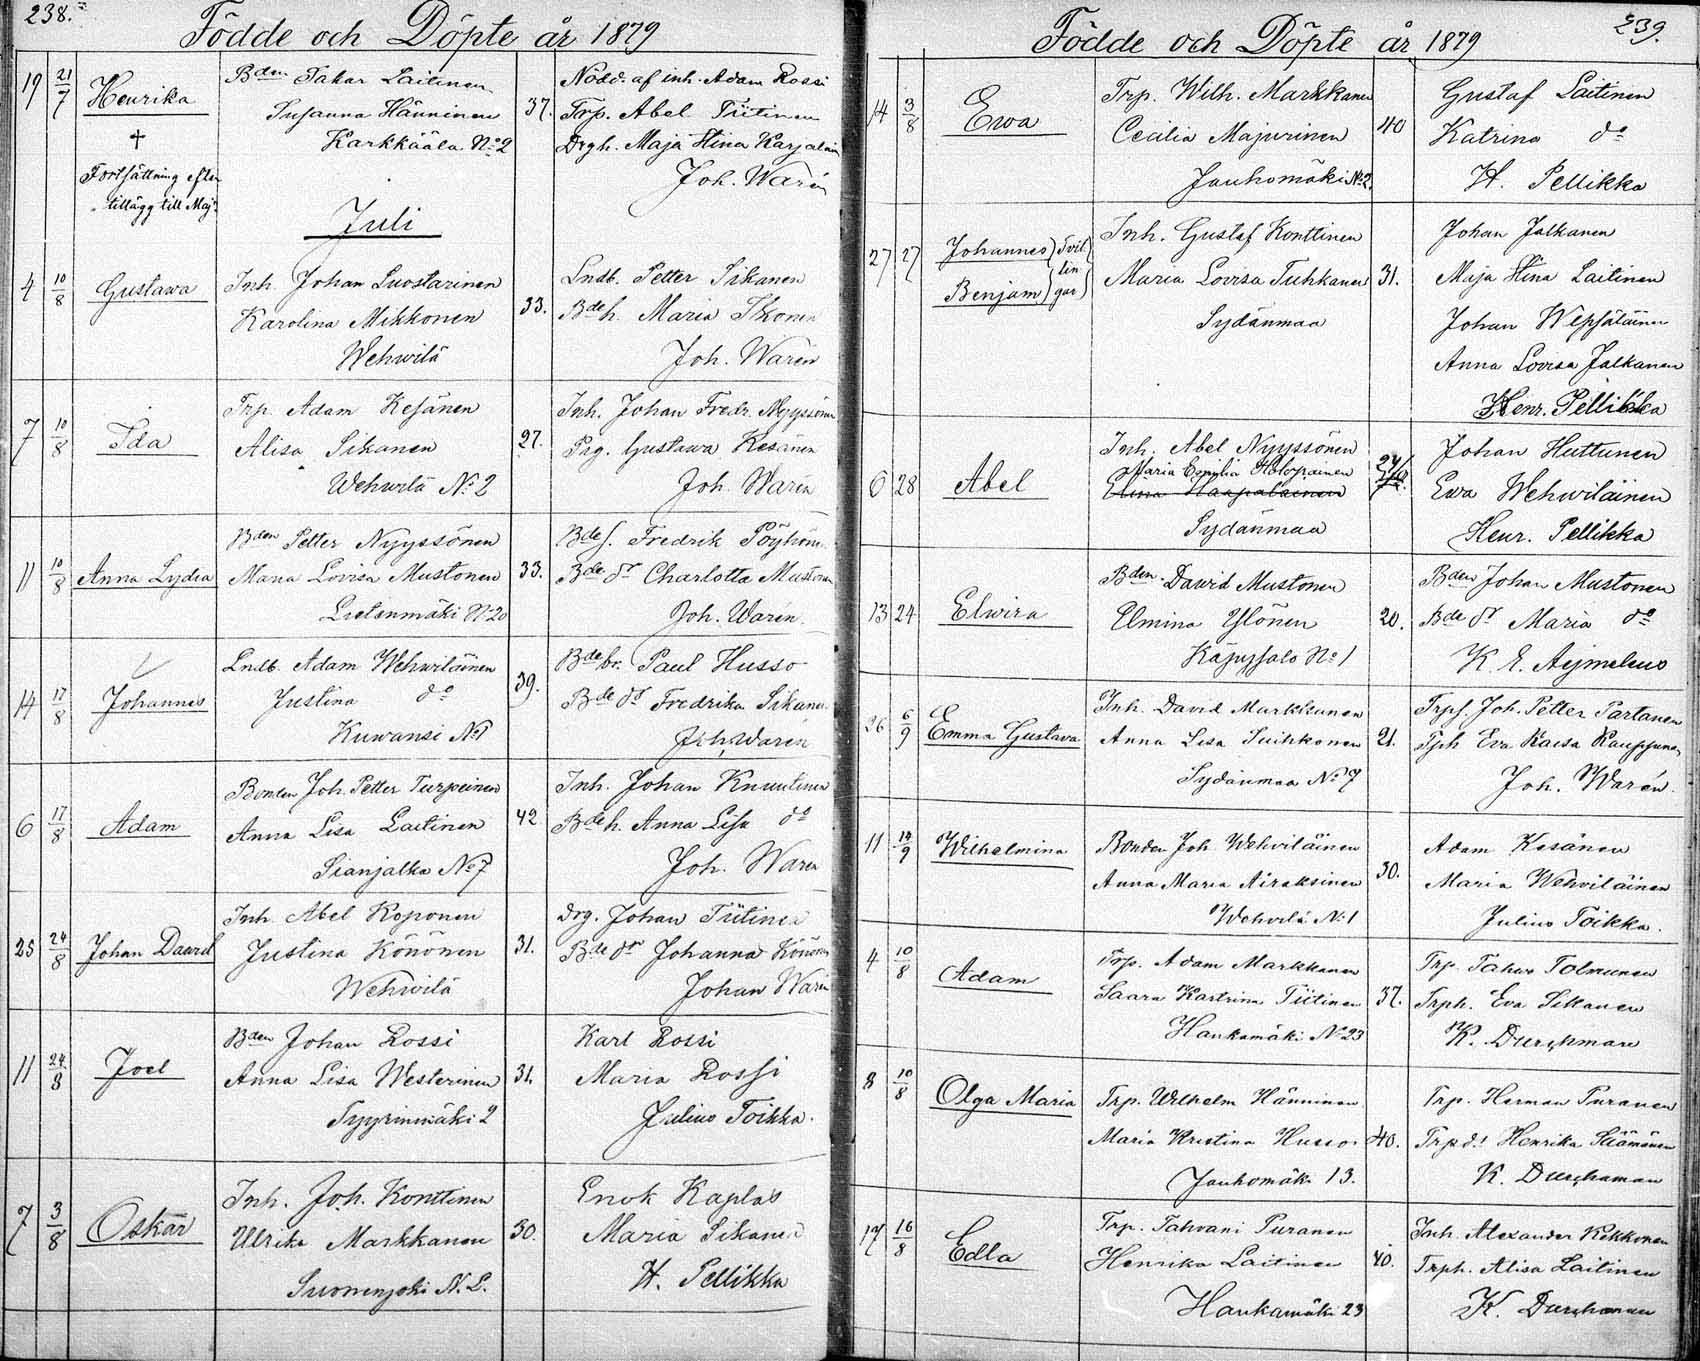 238.
Födde och Döpte år 1879
19 21/7 Henrika
†
Fortsättning efter
tillägg till Maj
Bden Takar Laitinen
Susanna Hänninen
Karkkäälä No 2
37.
Nödd. af inh. Adam Rossi
Trp. Abel Tiitinen
Drgh. Maja Stina Karjalain
Joh. Warén
Juli
4 10/8 Gustawa
Inh. Johan Luostarinen
Karolina Mikkonen
Wehwilä
33.
Lndb. Petter Sikanen
Bde h. Maria Ikonen
Joh. Warén
7 10/8 Ida
Trp. Adam Kesänen
Alisa Sikanen
Wehwilä No 2
27.
Inh. Johan Fredr. Nyyssönen
Pig. Gustawa Kesänen
Joh. Warén
11 10/8 Anna Lydia
Bden Petter Nyyssönen
Maria Lovisa Mustonen
Lietenmäki No 20
33.
Bde s. Fredrik Pöyhönen
Bde dr Charlotta Mustonen
Joh. Warén.
14 17/8 Johannes
Lndb. Adam Wehwiläinen
Justina do
Kuwansi No 1
39.
Bde br. Paul Husso
Bde dr Fredrika Sikanen
Joh. Warén
6 17/8 Adam
Bonden Joh. Petter Turpeinen
Anna Lisa Laitinen
Sianjalka No 7
42
Inh. Johan Knuutinen
Bde h. Anna Lisa do
Joh. Warén
25 24/8 Johan David
Inh. Abel Koponen
Justina Könönen
Wehwilä
31.
Drg. Johan Tiitinen
Bde dr Johanna Könönen
Johan Warén
11 24/8 Joel
Bden Johan Rossi
Anna Lisa Westerinen
Syyrinmäki 2
31.
Karl Rossi
Maria Rossi
Julius Toikka.
7 3/8 Oskar
Inh. Joh. Konttinen
Ulrika Markkanen
Suonenjoki N. 2.
30.
Enok Kaplas
Maria Sikanen
H. Pellikka
239.
Födde och Döpte år 1879
14 3/8 Ewa
Trp. Wilh. Markkanen
Cecilia Majurinen
Jauhomäki No 2.
40
Gustaf Laitinen
Katrina do
H. Pellikka
27 27 Johannes
Benjam
Tvil
lin
gar
Inh. Gustaf Konttinen
Maria Lovisa Tuhkanen
Sydänmaa
31.
Johan Jalkanen
Maja Stina Laitinen
Johan Wepsäläinen
Anna Lovisa Jalkanen
Henr. Pellikka
6 28 Abel
Inh. Abel Nyyssönen
Maria Holopainen
Elina Haapalainen
Sydänmaa
Johan Huttunen
Ewa Wehwiläinen
Henr. Pellikka
13 24 Elwira
Bden David Mustonen
Elmina Ylönen
Käpysalo No 1
20.
Bden Johan Mustonen
Bde dr Maria do
K. E. Aejmelæus
26 6/9 Emma Gustava
Inh. David Markkanen
Anna Lisa Suihkonen
Sydänmaa No 7
21.
Trps. Joh. Petter Partanen
Tph Eva Kaisa Kauppunen
Joh. Warén.
11 14/9 Wilhelmina
Bonden Joh Wehviläinen
Anna Maria Airaksinen
Wehvilä No 1
30.
Adam Kesänen
Maria Wehviläinen
Julius Toikka.
4 10/8 Adam
Trp. Adam Markkanen
Saara Kartrina Tiitinen
Haukamäki No 23
37.
Trp. Tahvo Tolvanen
Trph. Eva Sikanen
K. Durchman
8 10/8 Olga Maria
Trp. Wilhelm Hänninen
Maria Kristina Husso
Jauhomäki 13.
40.
Trp. Herman Puranen
Trpd. Henrika Päämänen
K. Durchman
17 16/8 Edla
Trp. Tahvani Puranen
Henrika Laitinen
Haukamäki 23
40.
Inh. Alexander Kekkonen
Trph. Alisa Laitinen
K. Durchman